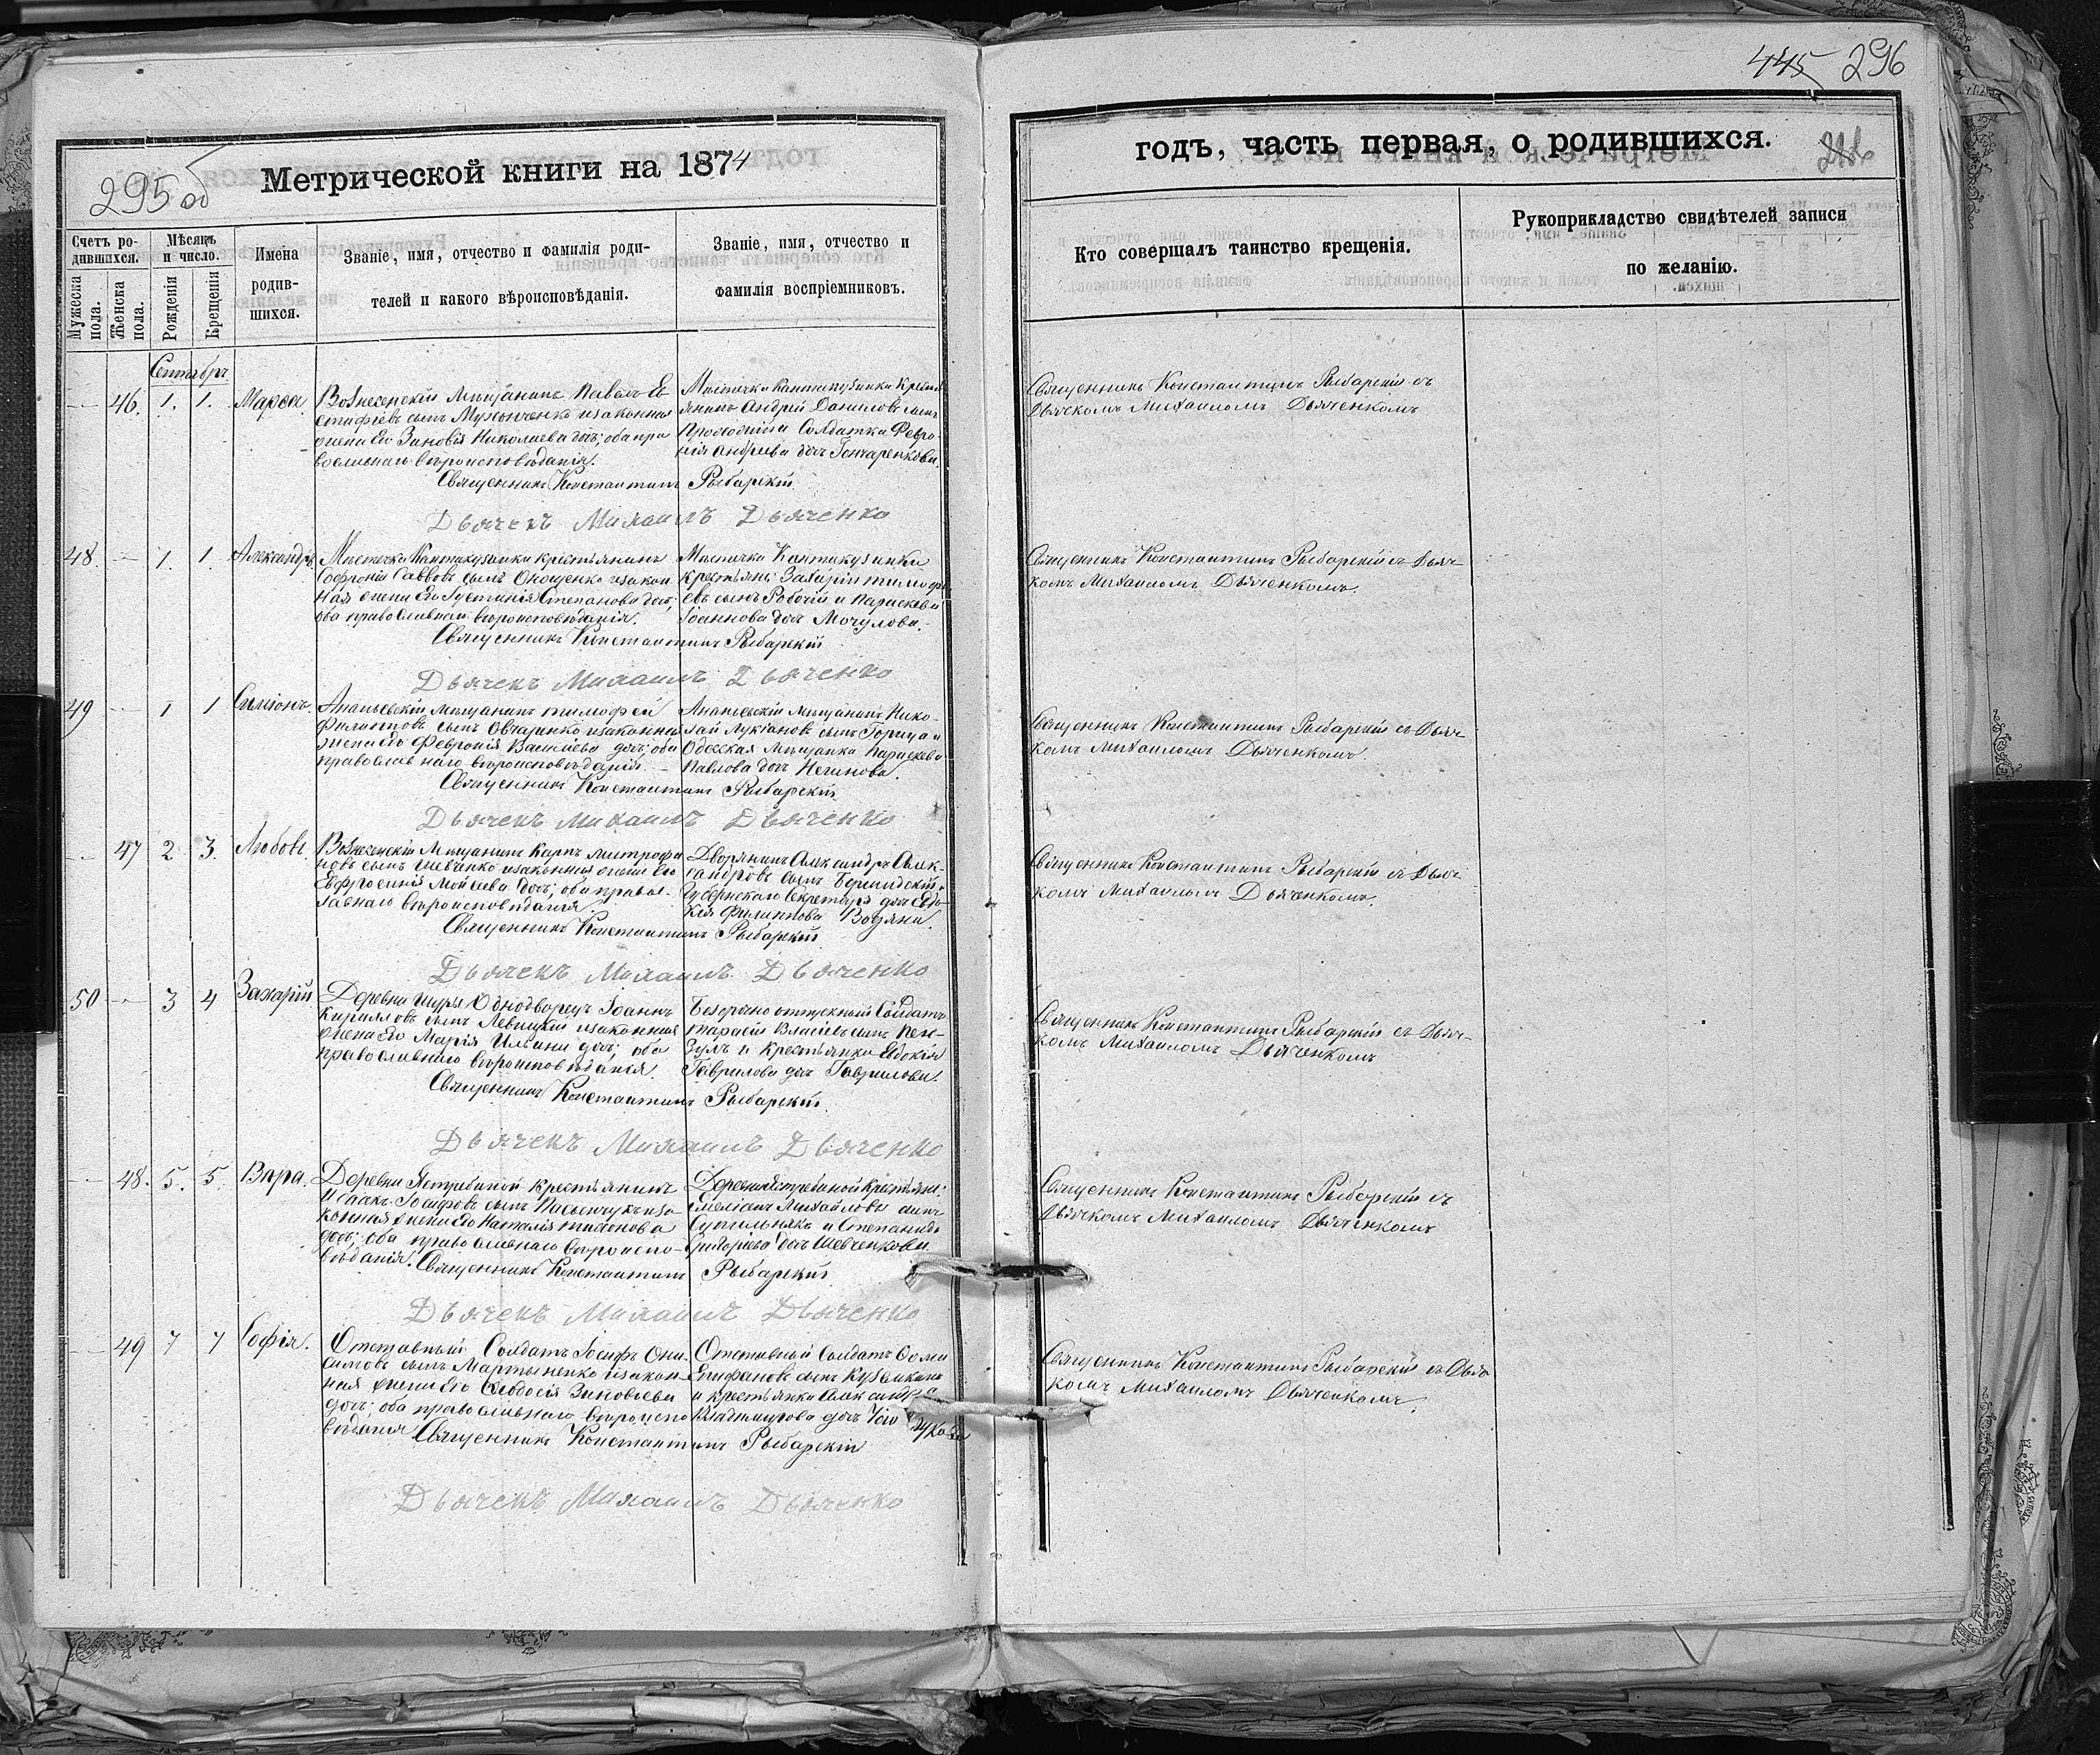 295 об
Метрической книги на 1874
Счетъ ро-
дившихся.
Мужеска пола.
Женска пола.
Мѣсяцъ
и число.
Рожденія
Крещенія
Имена
родив-
шихся.
Званіе, имя, отчество и фамилія роди-
телей и какого вѣроисповѣданія.
Званіе, имя, отчество и
фамилія воспріемниковъ.
Сентябрь
46. 1. 1. Марѳа.
Вознесенскій Мѣщанинъ Павелъ Ев
стафіевъ сынъ и законная
жена его Зиновія Николаева дочь; оба пра
вославнаго вѣроисповѣданія.
Мѣстечка Кантакузинки Крест
янинъ Андрій Даниловъ сынъ
и Солдатка Февро
нія Андреева дочь Гончаренкова.
Священникъ Константинъ Рыбарскій
Дьячекъ Михаилъ Дьяченко
48. 1. 1. Александръ.
Мѣстечка Кантакузинки крестьянинъ
Софроній Саввовъ сынъ Онощенко и закон
ная жена его Іустинія Степанова дочь;
оба православнаго вѣроисповѣданія.
Мѣстечка Кантакузинки
крестьяне: Захарій тимофе
евъ сынъ Робочій и Параскева
Іоаннова дочь Мочулова.
Священникъ Константинъ Рыбарскій
Дьячекъ Михаилъ Дьяченко
49 1 1 Симіонъ.
Ананьевскій мѣщанинъ тимофей
Филиповъ сынъ Овчаренко и законная
жена его Февронія Васильева дочь; оба
православнаго вѣроисповѣданія.
Ананьевскій мѣщанинъ Нико-
лай Лукіановъ сынъ Горица и
Одесская мѣщанка Параскева
Павлова дочь
Священникъ Константинъ Рыбарскій
Дьячекъ Михаилъ Дьяченко
47 2 3. Любовь.
Вознесенскій Мѣщанинъ Карпъ митрофа
новъ сынъ Шевченко и законная жена его
Евфросинія Моисеева дочь; оба правос-
лавнаго вѣроисповѣданія.
Дворянинъ Александръ Алек-
сандровъ сынъ и
Губернскаго Секретаря дочь Евдо-
кія Филиппова Водяни.
Священникъ Константинъ Рыбарскій
Дьячекъ Михаилъ Дьяченко
50 3 4 Захарій
Деревни Щуры Однодворецъ Іоаннъ
Кирилловъ сынъ Левицкій и законная
жена его Марія Ильина дочь; оба
православнаго вѣроисповѣданія.
Безсрочно отпускный Солдатъ
тарасій Власіевъ сынъ Пен-
зулъ и крестьянка Евдокія
Гаврилова дочь Гаврилова.
Священникъ Константинъ Рыбарскій.
Дьячекъ Михаилъ Дьяченко
48. 5. 5. Вѣра.
Деревни Ястребиной крестьянинъ
Исаакъ Іосифовъ сынъ и за-
конная жена его Наталія тихонова
дочь; оба православнаго вѣроиспо-
вѣданія.
Деревни Ястребиной крестьяне:
Емеліанъ Михайловъ сынъ
и Степанида
Григоріева дочь Шевченкова.
Священникъ Константинъ Рыбарскій
Дьячекъ Михаилъ Дьяченко
49 7 7 Софія.
Отставный Солдатъ Іосифъ Они-
симовъ сынъ Мартыненко и закон-
ная жена его Ѳеодосія Зиновіева
дочь; оба православнаго вѣроиспо
вѣданія
Отставный Солдатъ Ѳома
Епифановъ сынъ
и крестьянка Александра
Владимирова дочь
Священникъ Константинъ Рыбарскій
Дьячекъ Михаилъ Дьяченко
445 296
годъ, часть первая, о родившихся.
Кто совершалъ таинство крещенія.
Рукоприкладство свидѣтелей записи
по желанію.
Священникъ Константинъ Рыбарскій съ
Дьячкомъ Михаиломъ Дьяченкомъ
Священникъ Константинъ Рыбарскій съ Дьяч-
комъ Михаиломъ Дьяченкомъ.
Священникъ Константинъ Рыбарскій съ Дьяч-
комъ Михаиломъ Дьяченкомъ.
Священникъ Константинъ Рыбарскій съ Дьяч-
комъ Михаиломъ Дьяченкомъ.
Священникъ Константинъ Рыбарскій съ Дьяч-
комъ Михаиломъ Дьяченкомъ
Священникъ Константинъ Рыбарскій съ
Дьячкомъ Михаиломъ Дьяченкомъ
Священникъ Константинъ Рыбарскій съ Дьяч
комъ Михаиломъ Дьяченкомъ.